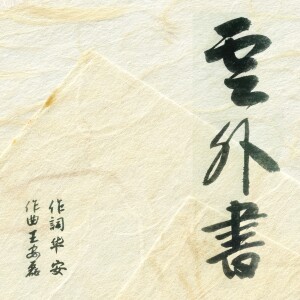 雲外書
作詞 华安
作曲 王安磊